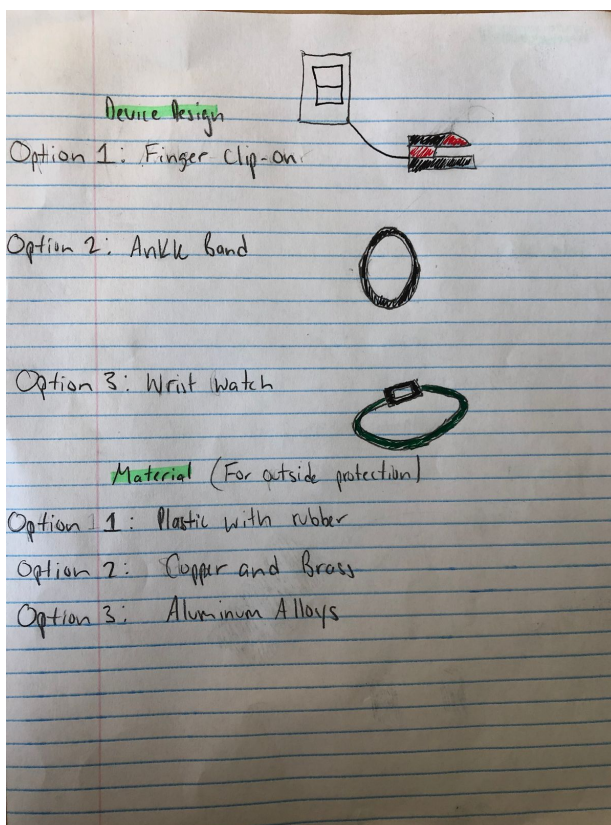 Device Design
Option 1: Finger Clip-on
Option 2: Ankle Band
Option 3: Wrist Watch
Material (For outside protection)
Option 1: Plastic with rubber
Option 2: Copper and Brass
Option 3: Aluminum Alloys